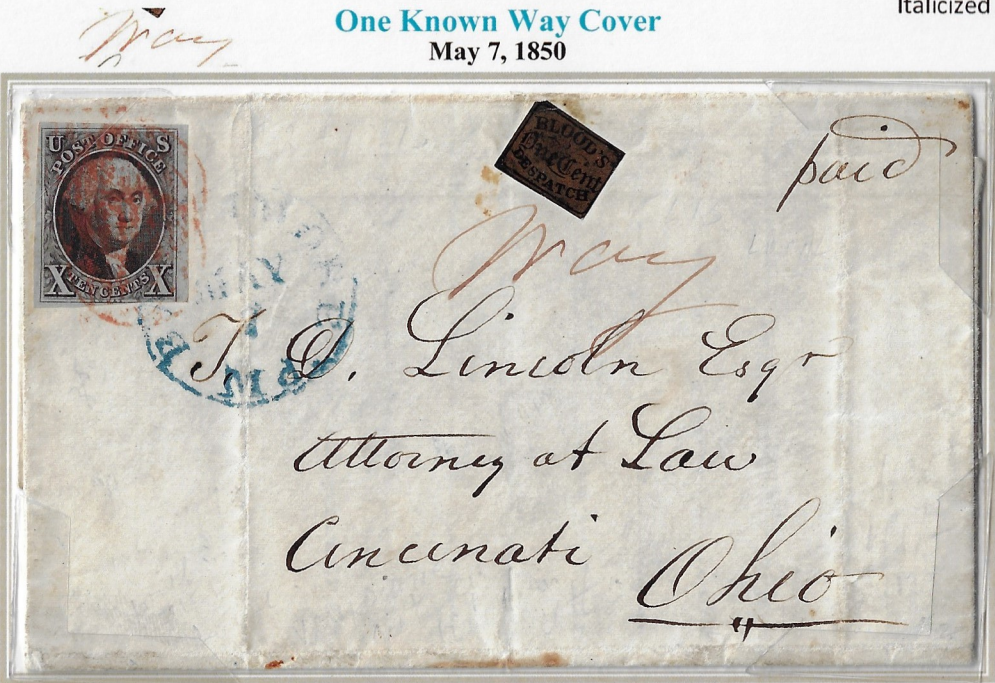 Italicized
way
One Known Way Cover
May 7, 1850
U S
POST OFFICE
X TEN CENTS X
BLOOD'S
One Cent
DESPATCH
paid
way
MAY
7
T. D. Lincoln Esqr
Attorney at Law
Cincinati
Ohio